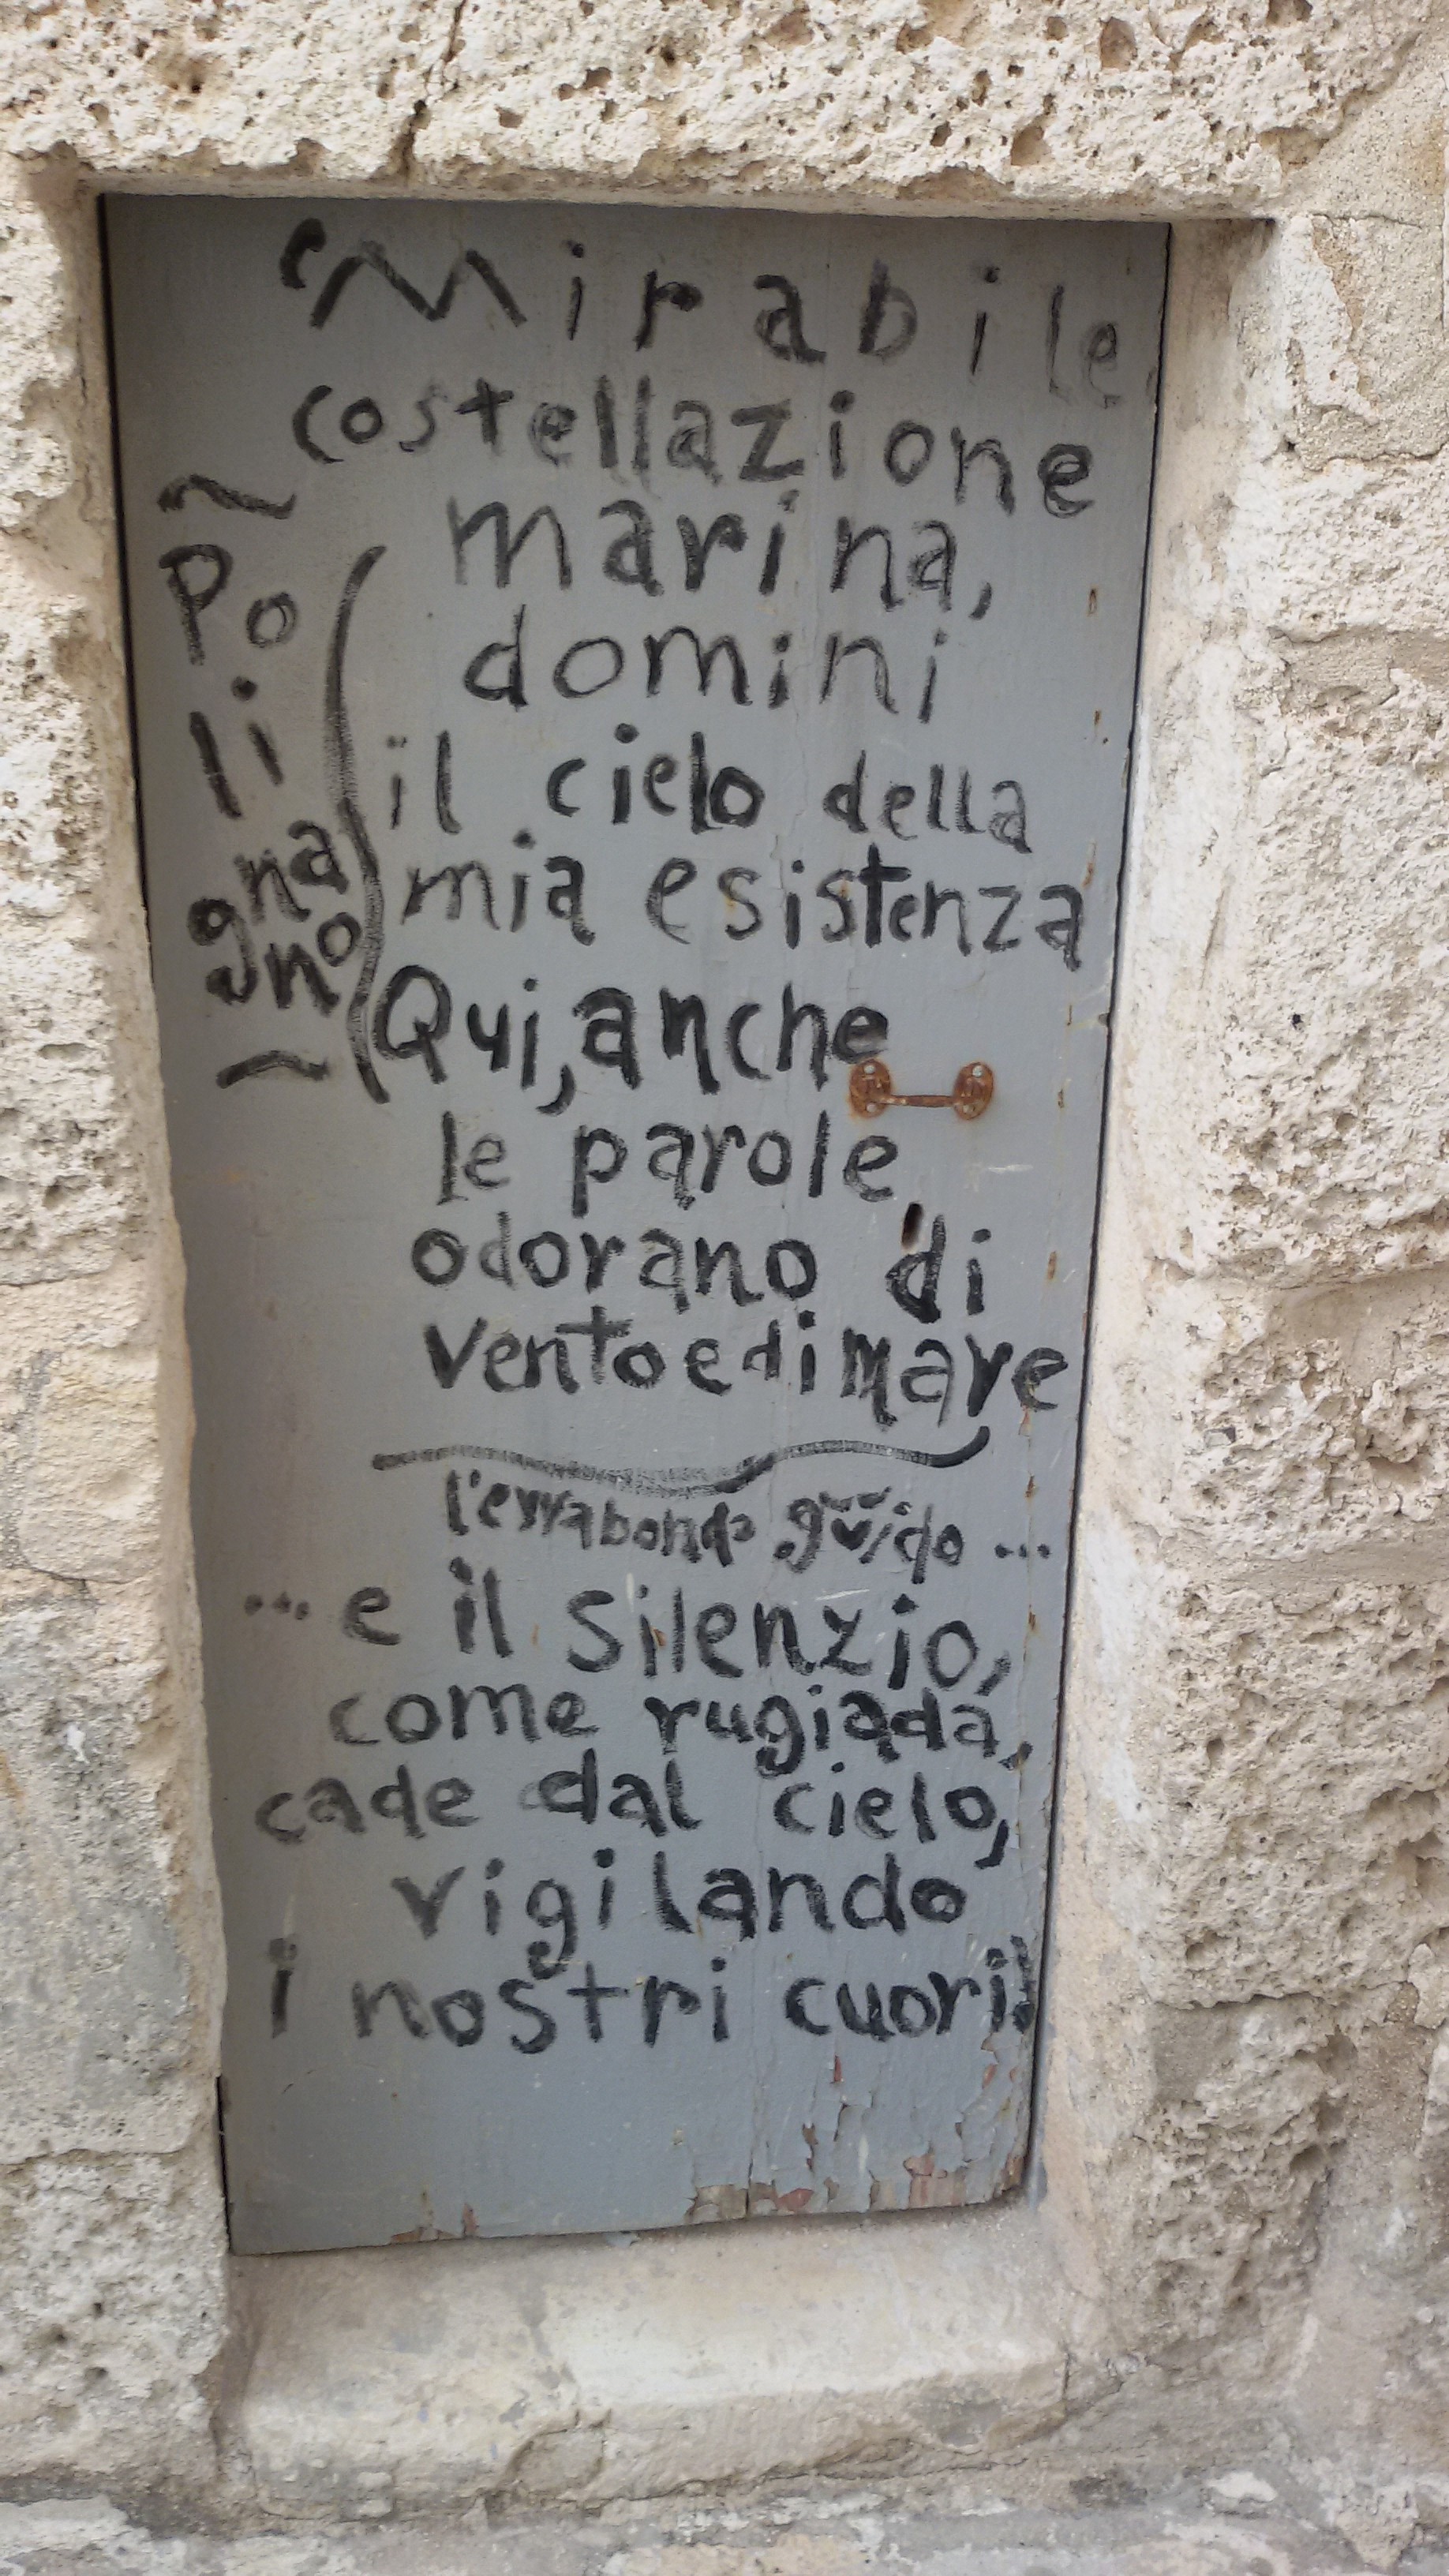 "Mirabile
costellazione
marina,
domini
il cielo della
mia esistenza
Qui, anche
le parole
odorano di
vento e di mare
~
Po
li
gna
gno
~
l'errabondo güido ...
... e il silenzio,
come rugiada,
cade dal cielo,
vigilando
i nostri cuori!